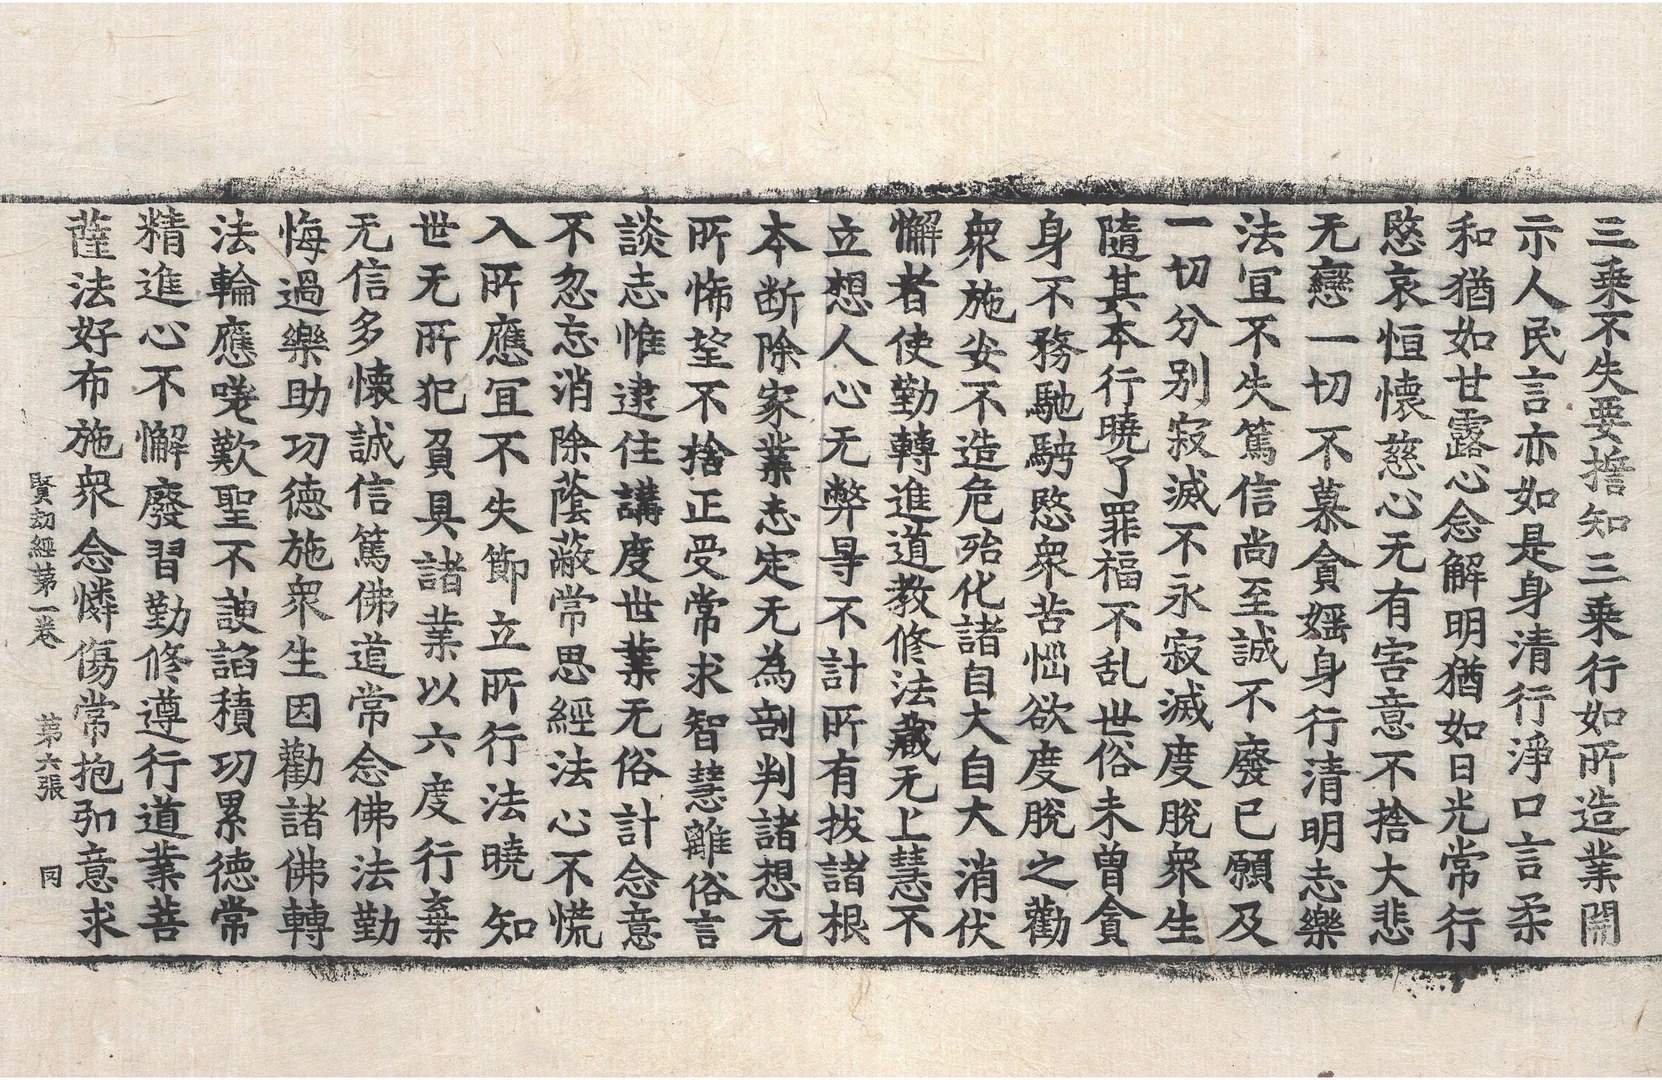 三乘不失要捨知三乘行如所造業開
示人民言亦如是身清行淨口言柔
和猶如甘露心念解明猶如日光常行
愍哀恒懷慈心无有害意不捨大悲
无戀一切不慕貪婬身行清明志樂
法宜不失篤信尚至誠不廢已願及
一切分别寂滅不永寂滅度脫衆生
隨其本行曉了罪福不乱世俗未曾貪
身不務馳騁愍衆苦惱欲度脫之勸
衆施安不造危殆化諸自大自大消伏
懈者使勤轉進道教修法藏无上慧不
立想人心无弊㝵不計所有拔諸根
本断除家業志定无為剖判諸想无
所悕望不捨正受常求智慧離俗言
談志惟逮住講度世業无俗計念意
不忽忘消除蔭蔽常思經法心不慌
入所應宜不失節立所行法曉知
世无所犯負具諸業以六度行棄
无信多懷誠信篤佛道常念佛法勤
悔過樂助功德施衆生因勸諸佛轉
法輪應嗟歎聖不諛謟積功累德常
精進心不懈廢習勤修遵行道業菩
薩法好布施衆念憐傷常抱弘意求
賢劫經苐一卷 苐六張 同